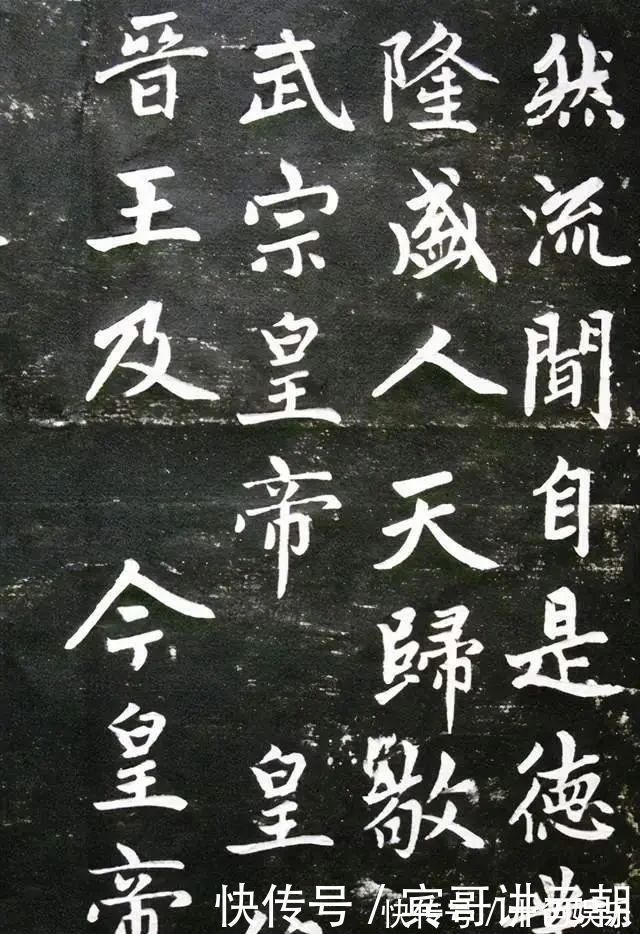 然流聞自是德
隆盛人天歸敬
武宗皇帝 皇
晋王及 今皇帝
快传号 /